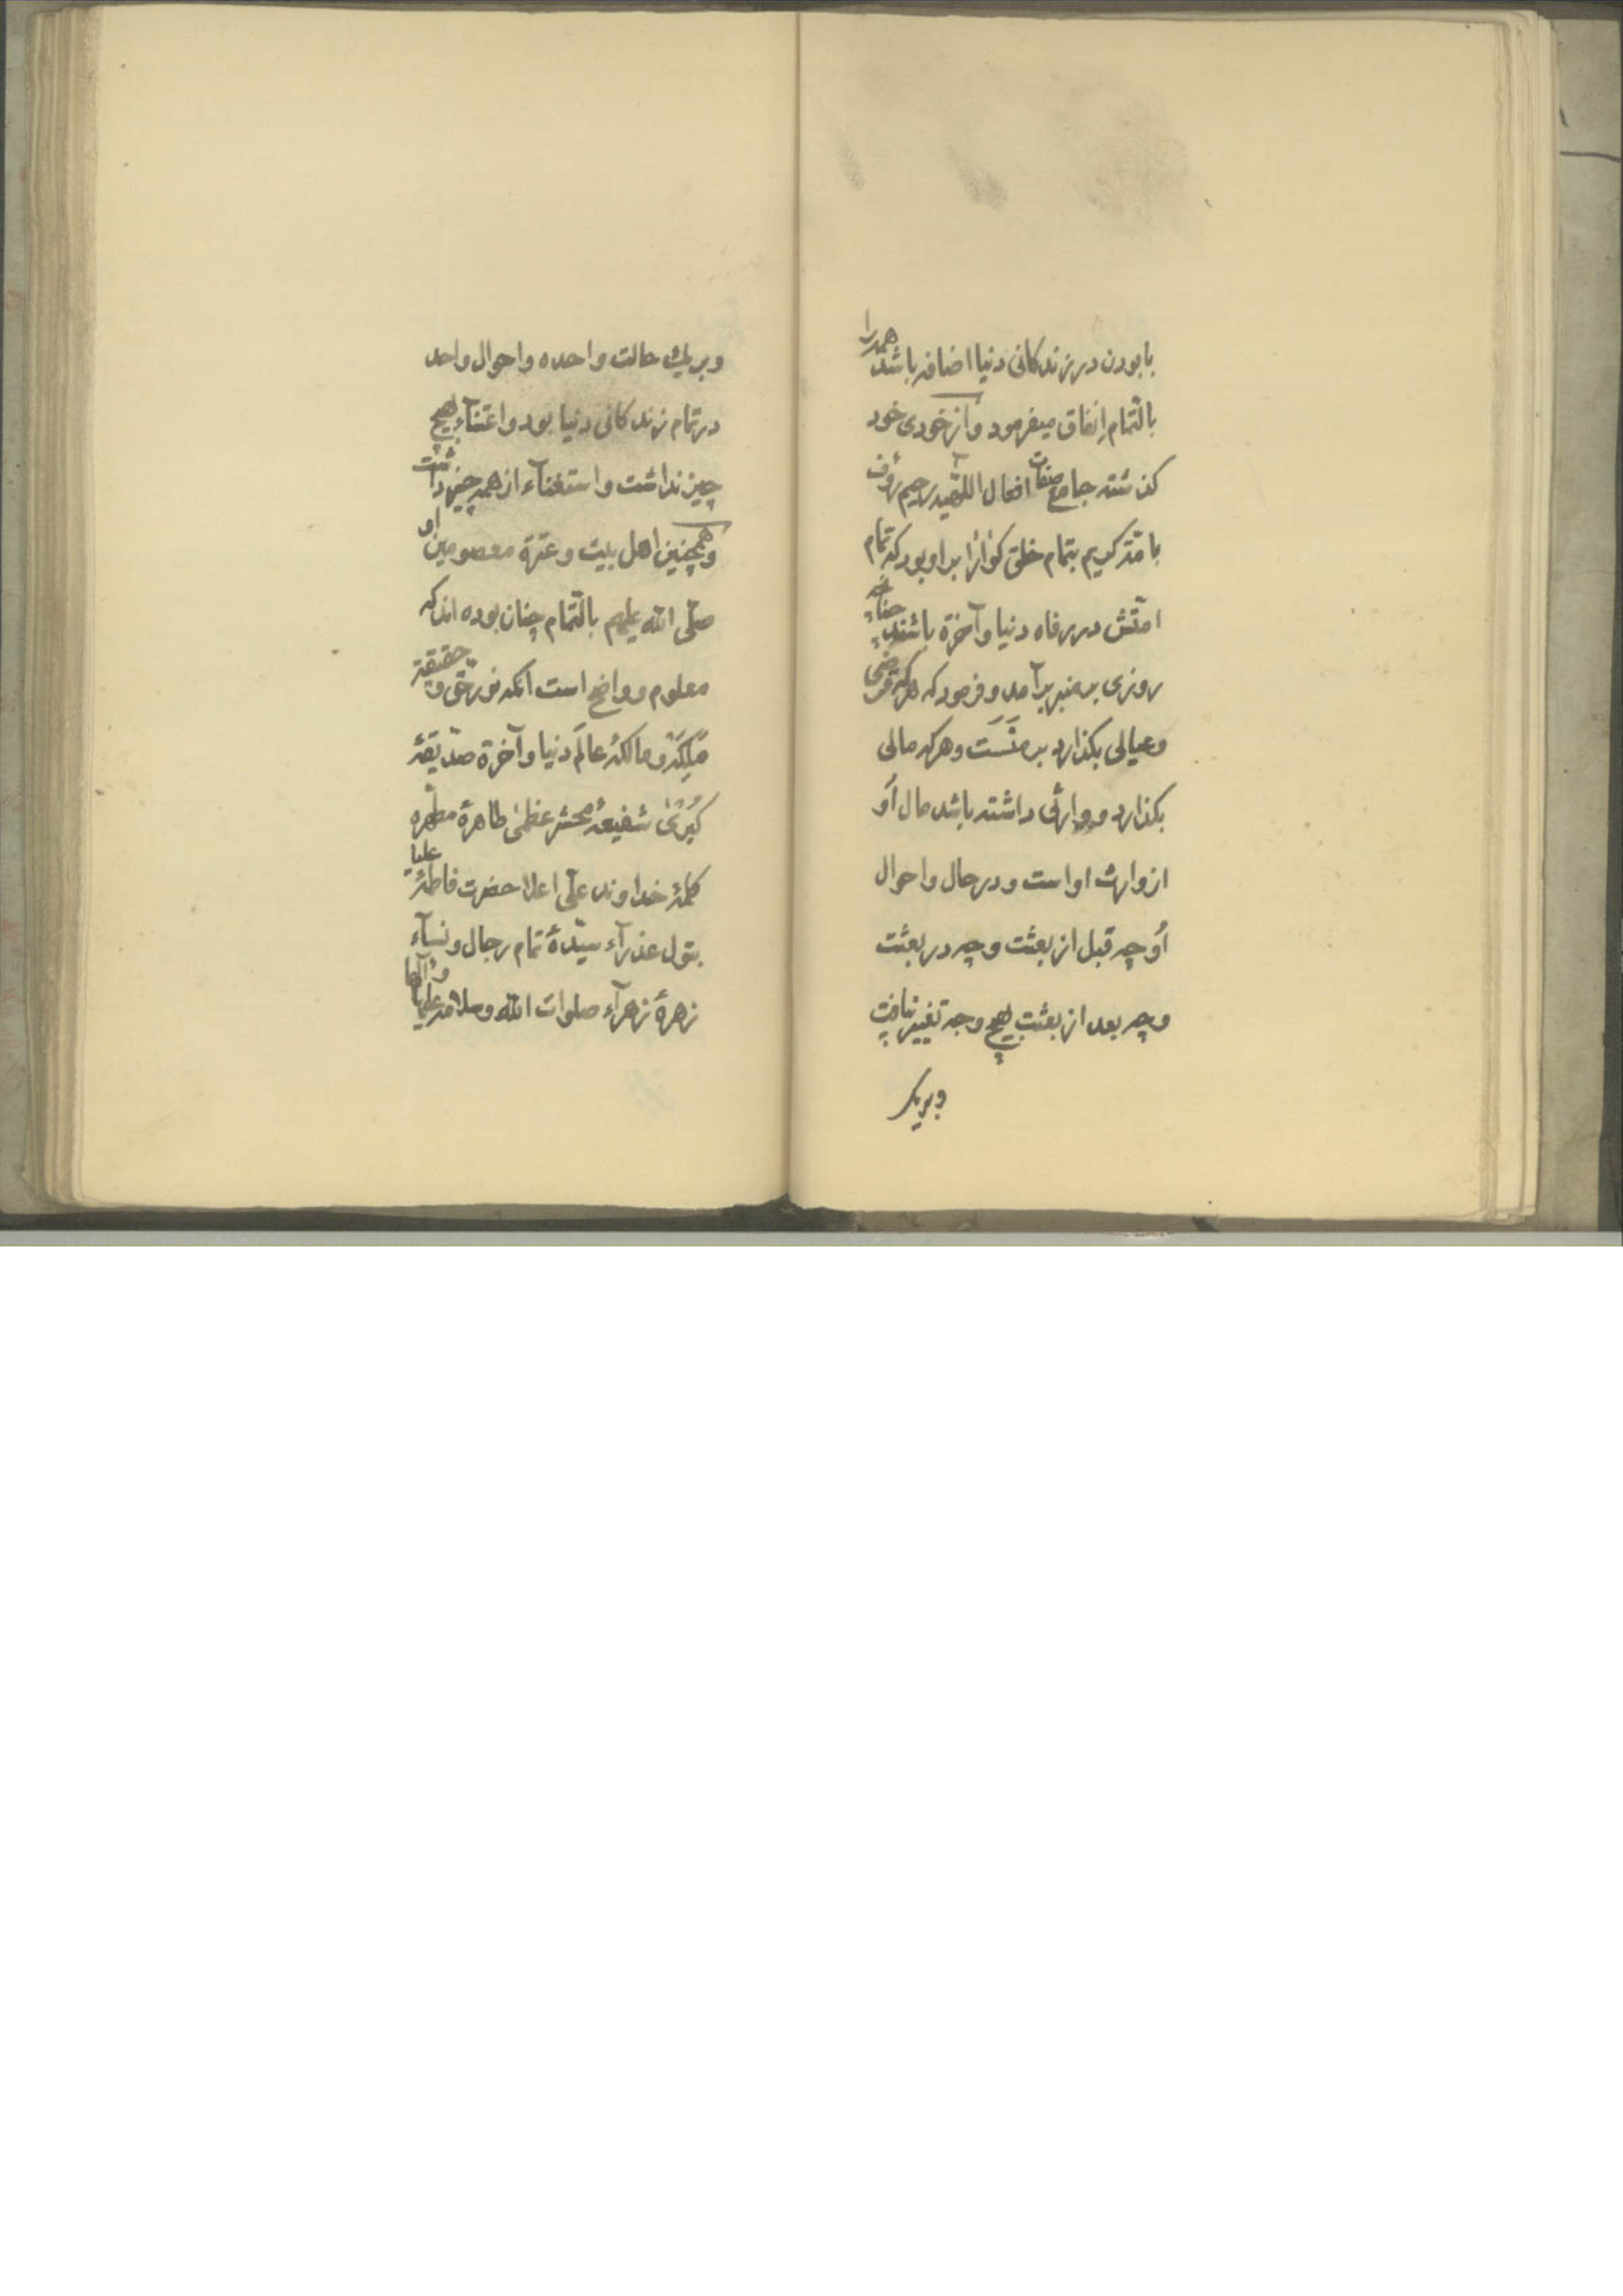 با بودن در زندکانی دنیا اضافه باشد همه را
بالتّمام اِنفاق میفرمود و از خودی خود
کذشته جامع صفات افعال اللّهیه رحیم رؤف
کریم بتمام خلق او بود که تمام
امتّش در رفاه دنیا و آخرة باشند چنانچه
روزی بر منبر بر آمد و فرمود که هرکه قرضی
و عیالی بکذارد بر منَسَت و هرکه مالی
بکذارد و وارثی داشته باشد مال اَو
از وارث او است و در حال و احوال
اُو چه قبل از بعثت و چه در بعثت
و چه بعد از بعثت بهیچ وجه تغییر نیافت
و بریک
و بریك حالت واحده و احوال واحد
در تمام زندکانی دنیا بود و اعتنآء بهیچ
چیز نداشت و استغنآء از همه چیز داشت
و همچنین اهل بیت و عترة معصومین او
صلّی الله علیهم بالتّمام چنان بوده اند که
معلوم و واضح است آنکه نور حق و حقیقة
مَلِکَهٔ و مالکهٔ عالَم دنیا و آخرة صدّیقهٔ
کُبریٰ شفیعهٔ محشر عظمیٰ طاهرهٔ مطهّره
کلمهٔ خداوند علّی اعلا حضرت فاطمهٔ علیا
بتول عذرآء سیّدهٔ تمام رجال و نسآء
زهرهٔ زهرآء صلوات الله و سلامه علیها و آلها